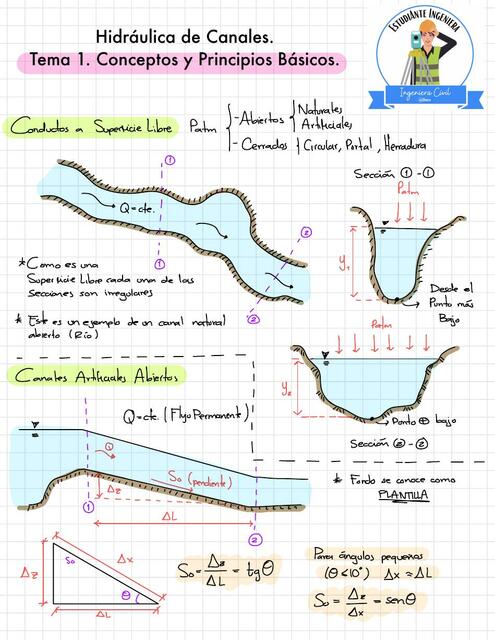 Hidráulica de Canales.
Tema 1. Conceptos y Principios Básicos.
ESTUDIANTE INGENIERA
Ingeniera Civil
Conductos a Superficie Libre
Patm
-Abiertos
Naturales
Artificiales
-Cerrados
Circular, Portal, Herradura
①
Q=cte.
②
* Como es una
Superficie Libre cada una de las
Secciones son irregulares
* Este es un ejemplo de un canal natural
abierto (Río)
②
Sección ①-①
Patm
y₁
Desde el
Punto más
Bajo
Patm
y₂
Punto ⊕ bajo
Sección ②-②
Canales Artificiales Abiertos
Q=cte. (Flujo Permanente)
Q
So (pendiente)
Δz
①
ΔL
②
* Fondo se conoce como
PLANTILLA
Δz
So
Δx
θ
ΔL
So = Δz/ΔL = tgθ
Para ángulos pequeños
(θ<10°) Δx ≈ ΔL
So = Δz/Δx = senθ